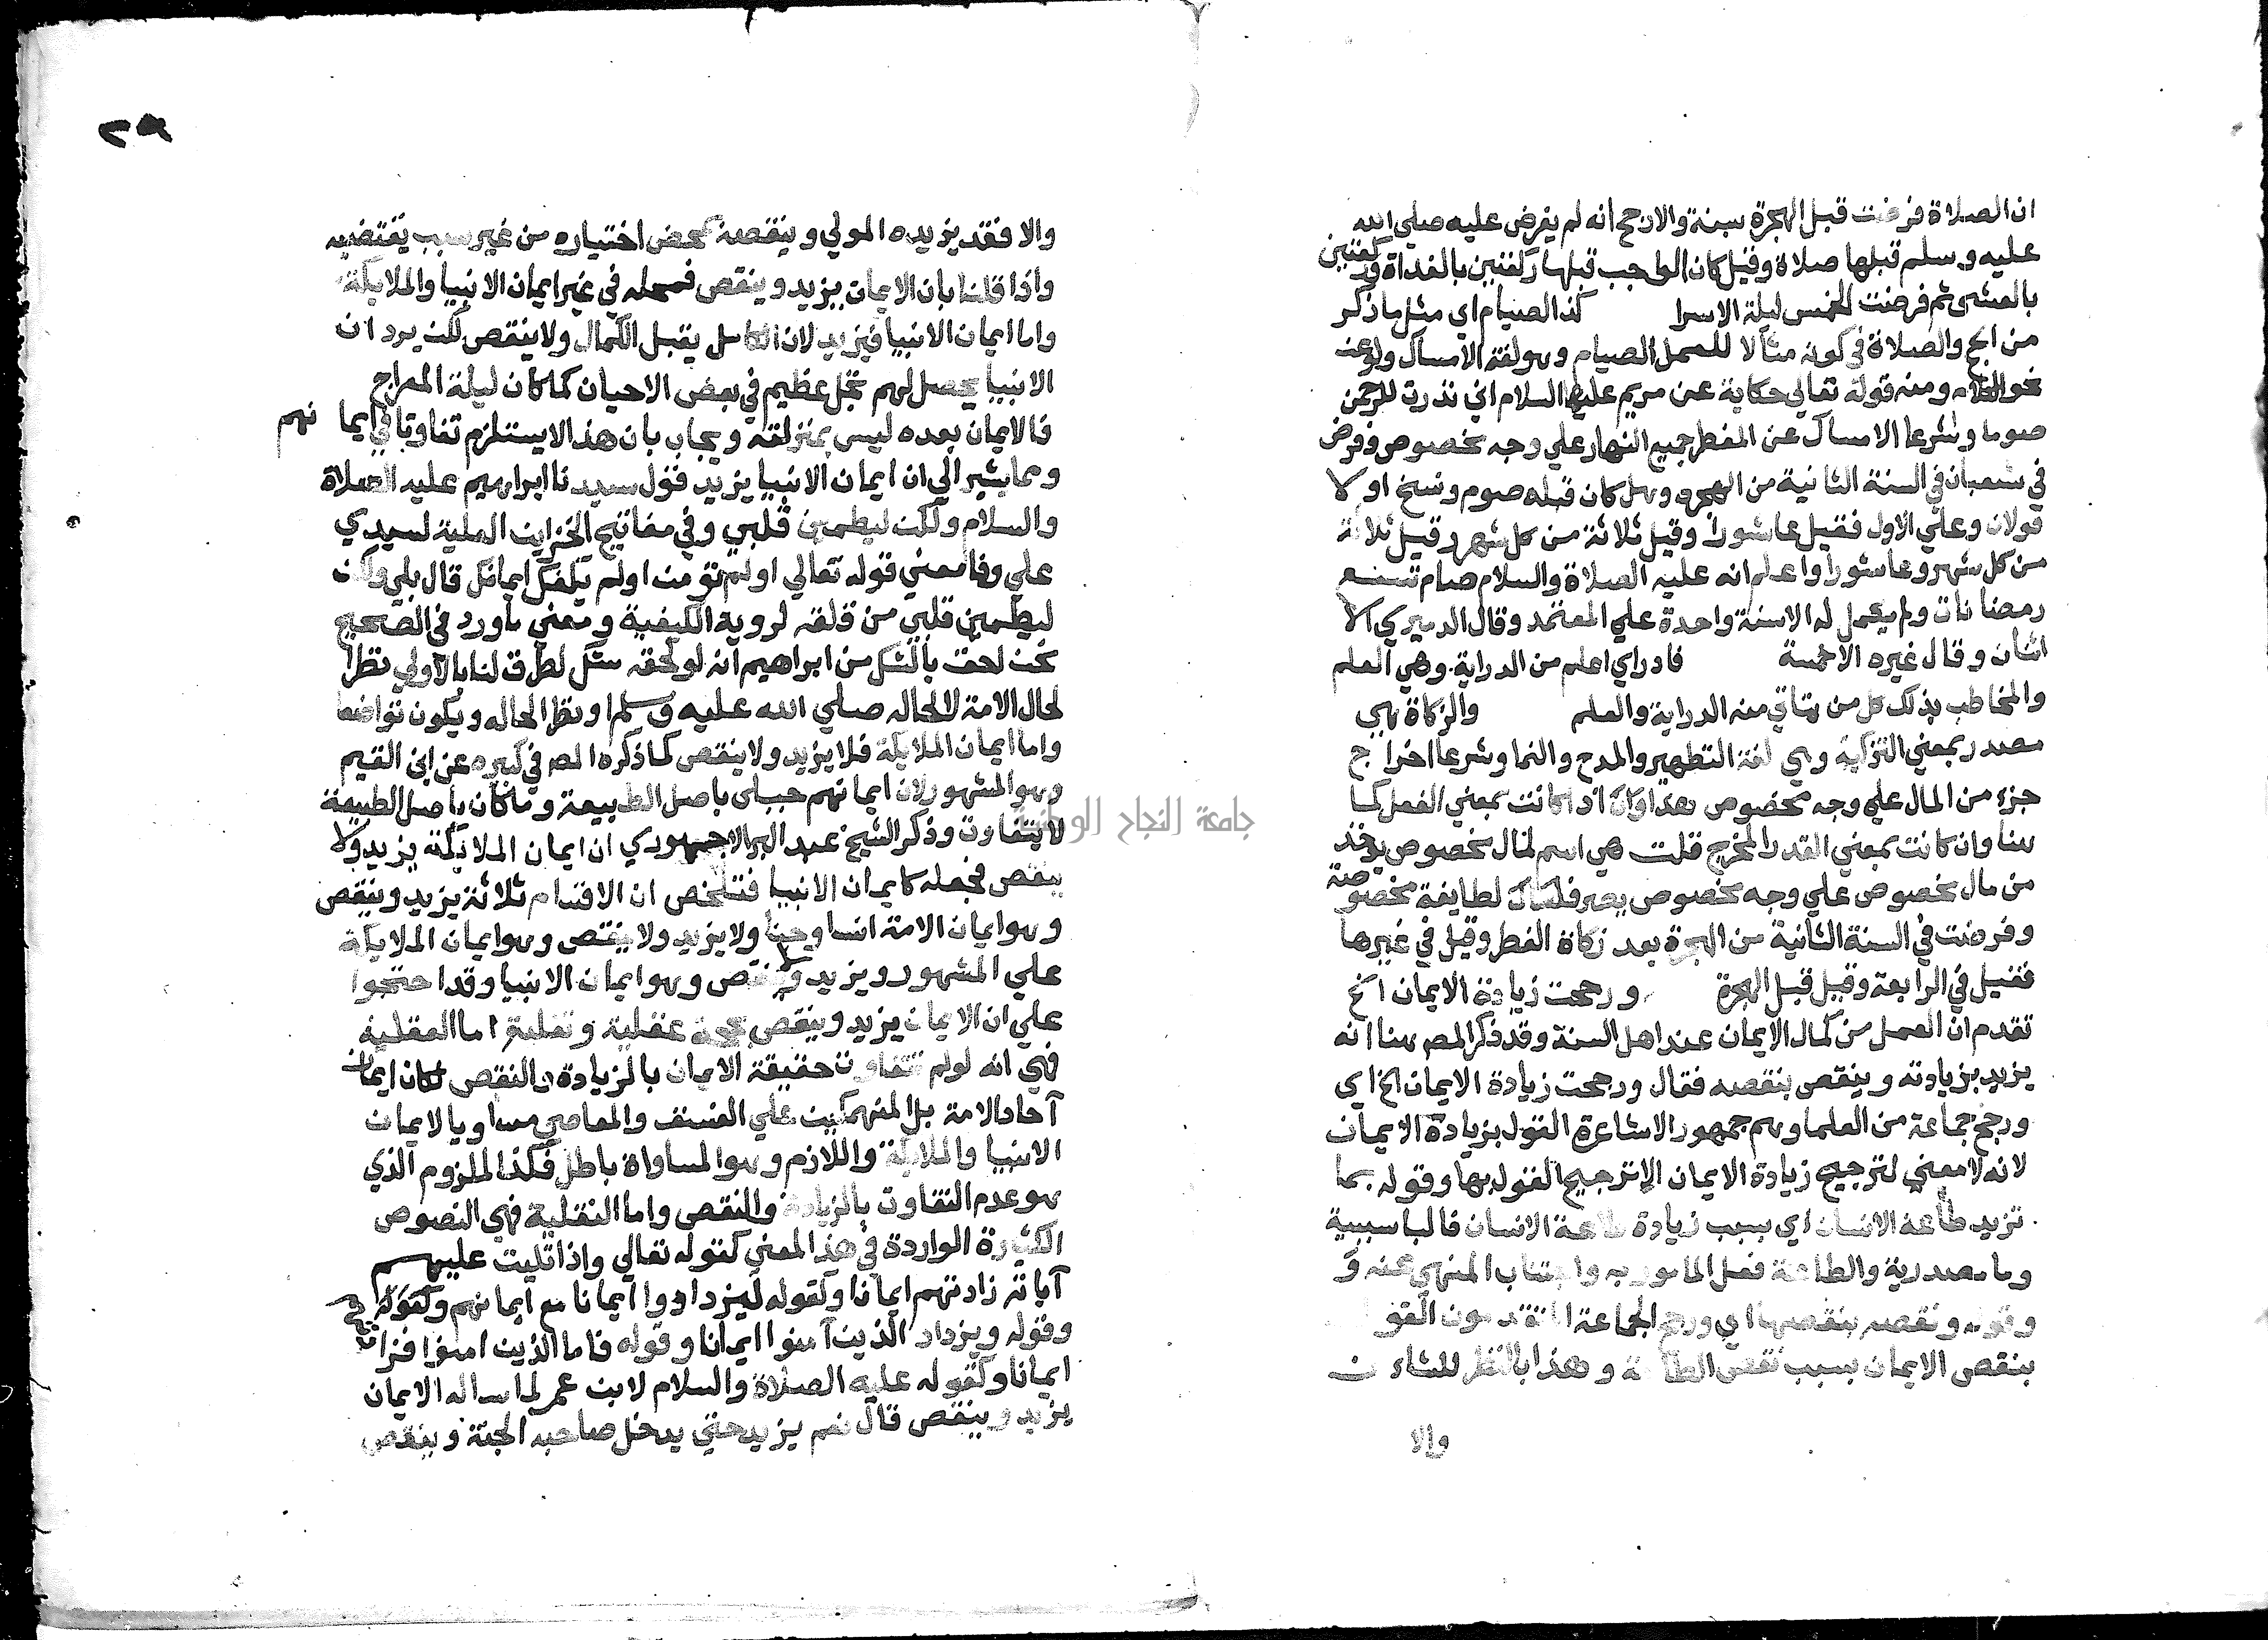 ان الصلاة فرضت قبل الهجرة بسنة والارجح انه لم يفرض عليه صلي الله
عليه وسلم قبلها صلاة وقيل كان الواجب قبلها ركعتين بالغداة وركعتين
بالعشي ثم فرضت الخمس ليلة الاسرا كذا الصيام اي مثل ما ذكر
من الحج والصلاة في كونه مثالا للعمل الصيام وهو لغة الامساك ولو عن
نحو الكلام ومنه قوله تعالي حكاية عن مريم عليها السلام اني نذرت للرحمن
صوما وشرعا الامساك عن المفطر جميع النهار علي وجه مخصوص وفرض
في شعبان في السنة الثانية من الهجرة وهل كان قبله صوم ونسخ او لا
قولان وعلي الاول فقيل عاشورا وقيل ثلاثة من كل شهر وقيل ثلاثة
من كل شهر وعاشورا واعلم انه عليه الصلاة والسلام صام تسع
رمضانات ولم يكمل له الا سنة واحدة علي المعتمد وقال الدميري الا
اثنان وقال غيره الا خمسة فادر اي اعلم من الدراية وهي العلم
والمخاطب بذلك كل من يتاتي منه الدراية والعلم والزكاة هي
مصدر بمعني التزكية وهي لغة التطهير والمدح والنما وشرعا اخراج
جزء من المال علي وجه مخصوص هذا وان اذا كانت بمعني الفعل كما
هنا وان كانت بمعني القدر المخرج قلت هي اسم لمال مخصوص يوخذ
من مال مخصوص علي وجه مخصوص يصرف لطايفة مخصوصة
وفرضت في السنة الثانية من الهجرة بعد زكاة الفطر وقيل في غيرها
فقيل في الرابعة وقيل قبل الهجرة ورجحت زيادة الايمان الخ
تقدم ان العمل من كمال الايمان عند اهل السنة وقد ذكر المصه هنا انه
يزيد بزيادته وينقص بنقصه فقال ورجحت زيادة الايمان الخ اي
ورجح جماعة من العلما وهم جمهور الاشاعرة القول بزيادة الايمان
لانه لا معني لترجيح زيادة الايمان الا ترجيح القول بها وقوله بما
تزيد طاعة الانسان اي بسبب زيادة طاعة الانسان فالبا سببية
وما مصدرية والطاعة فعل المامور به واجتناب المنهي عنه و
وقوله ونقصه بنقصها اي ورجح الجماعة المتقدمون القول
بنقص الايمان بسبب نقص الطاعة وهذا بالنظر للشان
والا
٢٩
والا فقد يزيده المولي وينقصه بمحض اختياره من غير سبب يقتضيه
واذا قلنا بان الايمان يزيد وينقص فمحله في غير ايمان الانبيا والملايكة
واما ايمان الانبيا فيزيد لان الكامل يقبل الكمال ولا ينقص لكن يرد ان
الانبيا يحصل لهم تجل عظيم في بعض الاحيان كما كان ليلة المعراج
فالايمان بعده ليس بمنزلته ويجاب بان هذا لا يستلزم تفاوتا في ايمانهم
ومما يشير الي ان ايمان الانبيا يزيد قول سيدنا ابراهيم عليه الصلاة
والسلام ولكن ليطمين قلبي وفي مفاتيح الخزاين العلية لسيدي
علي وفا معني قوله تعالي اولم تؤمن اولم يكفك ايمانك قال بلي ولكن
ليطمين قلبي من قلقه لروية الكيفية ومعني ما ورد في الصحيح
نحن احق بالشك من ابراهيم انه لو لحقه شك لطرق لنا بالاولي نظرا
لحال الامة لا لحاله صلي الله عليه وسلم او نظرا لحاله ويكون تواضعا
واما ايمان الملايكة فلا يزيد ولا ينقص كما ذكره المصه في كبيره عن ابن القيم
وهو المشهور لان ايمانهم جبلي باصل الطبيعة وما كان باصل الطبيعة
لا يتفاوت وذكر الشيخ عبد البر الاجهوري ان ايمان الملايكة يزيد ولا
ينقص فجعله كايمان الانبيا فتلخص ان الاقسام ثلاثة يزيد وينقص
وهو ايمان الامة انسا وجنا ولا يزيد ولا ينقص وهو ايمان الملايكة
علي المشهور ويزيد ولا ينقص وهو ايمان الانبيا وقد احتجوا
علي ان الايمان يزيد وينقص بحجة عقلية ونقلية اما العقلية
فهي انه لو لم تتفاوت حقيقة الايمان بالزيادة والنقص لكان ايمان
آحاد الامة بل المنهمكين علي الفسق والمعاصي مساويا لايمان
الانبيا والملايكة واللازم وهو المساواة باطل فكذا الملزوم الذي
هو عدم التفاوت بالزيادة والنقص واما النقلية فهي النصوص
الكثيرة الواردة في هذا المعني كقوله تعالي واذا تليت عليهم
آياته زادتهم ايمانا وكقوله ليزدادوا ايمانا مع ايمانهم وكقوله
وقوله ويزداد الذين آمنوا ايمانا وقوله فاما الذين امنوا فزادتهم
ايمانا وكقوله عليه الصلاة والسلام لابن عمر لما ساله الايمان
يزيد وينقص قال نعم يزيد حتي يدخل صاحبه الجنة وينقص
جامعة النجاح الوطنية